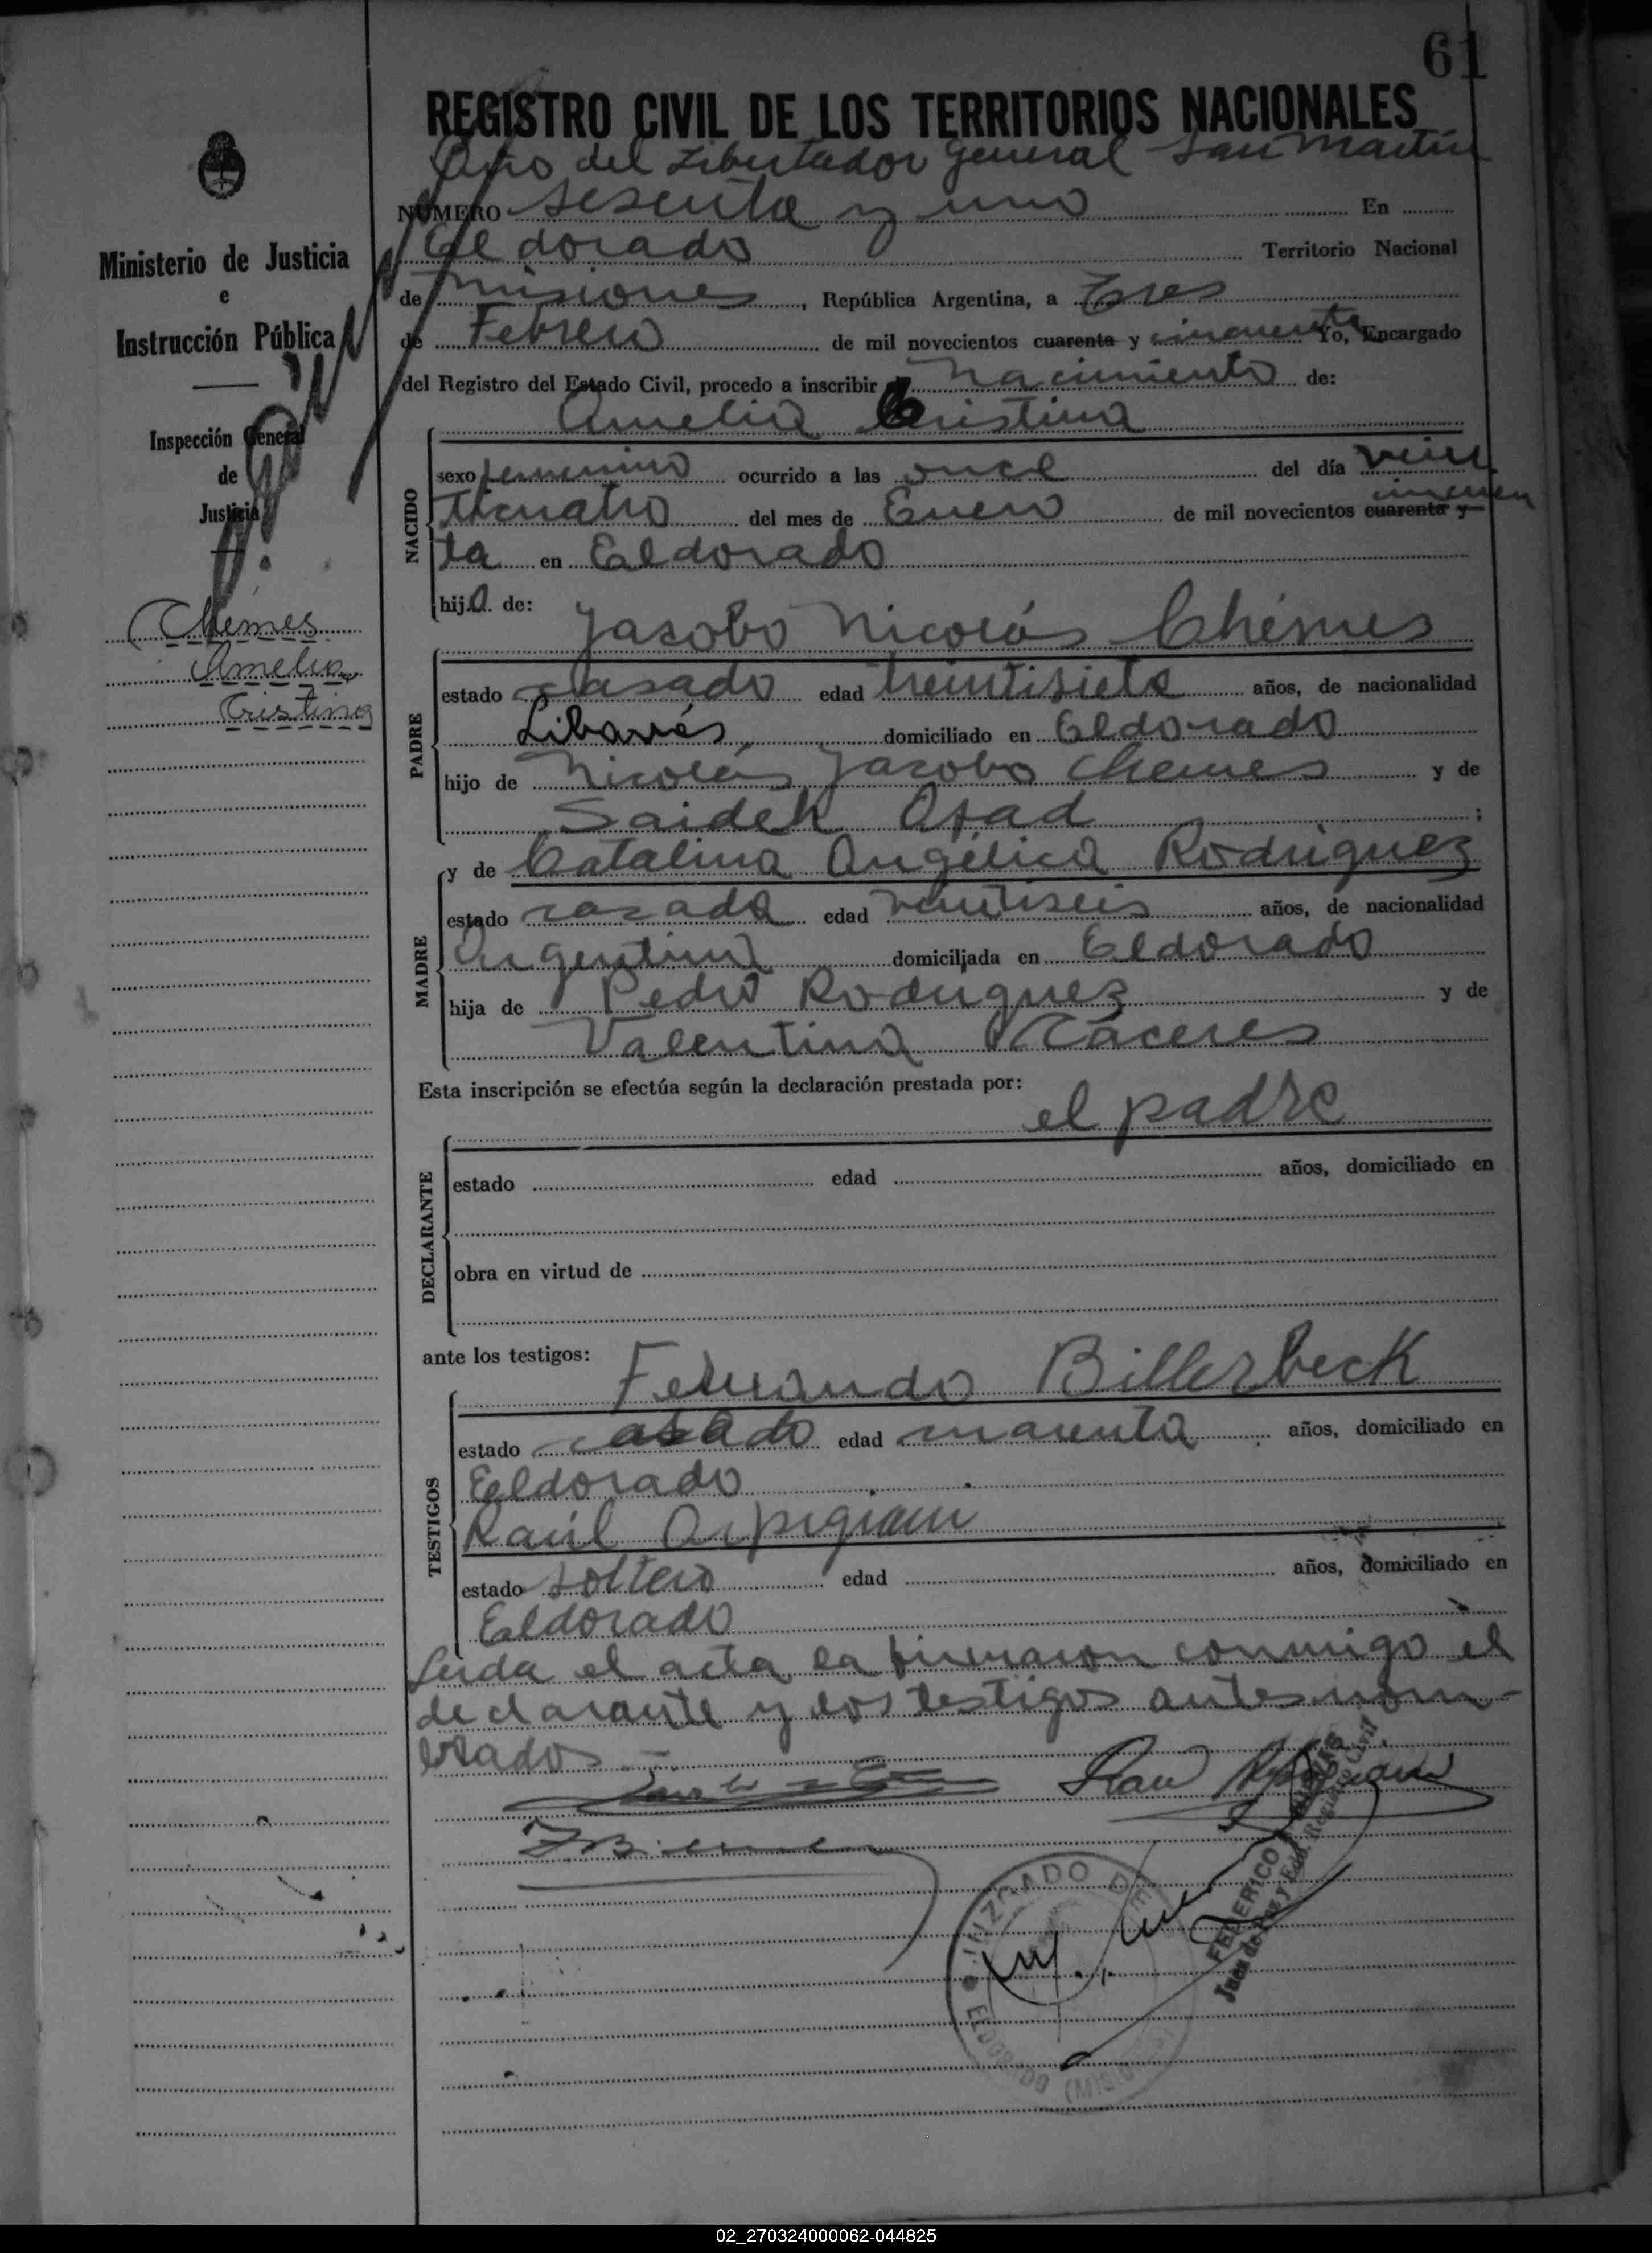 61
REGISTRO CIVIL DE LOS TERRITORIOS NACIONALES
Año del Libertador General San Martín
NÚMERO sesenta y uno En
Eldorado Territorio Nacional
de Misiones, República Argentina, a Tres
de Febrero de mil novecientos cuarenta y cincuenta Yo, Encargado
del Registro del Estado Civil, procedo a inscribir el nacimiento de:
Amelia Cristina
NACIDO
sexo femenino ocurrido a las once del día vein
ticuatro del mes de Enero de mil novecientos cuarenta y cincuen
ta en Eldorado
hija de:
Jacobo Nicolás Chémes
PADRE
estado casado edad treintisiete años, de nacionalidad
Libanés domiciliado en Eldorado
hijo de Nicolás Jacobo Chemes y de
Saideh Asad ;
y de Catalina Angélica Rodriguez
MADRE
estado casada edad veintiseis años, de nacionalidad
Argentina domiciliada en Eldorado
hija de Pedro Rodriguez y de
Valentina Cáceres
Esta inscripción se efectúa según la declaración prestada por:
el padre
DECLARANTE
estado edad años, domiciliado en
obra en virtud de
ante los testigos:
Fernando Billerbeck
TESTIGOS
estado casado edad cuarenta años, domiciliado en
Eldorado
Raúl Arpigiani
estado soltero edad años, domiciliado en
Eldorado
Leida el acta la firmaron conmigo el
declarante y los testigos antes nom-
brados
Ministerio de Justicia
e
Instrucción Pública
Inspección General
de
Justicia
Chémes
Amelia
Cristina
JUZGADO DE
ELDORADO (MISIONES)
FEDERICO
Juez de Paz y Enc. Registro Civil
02_270324000062-044825